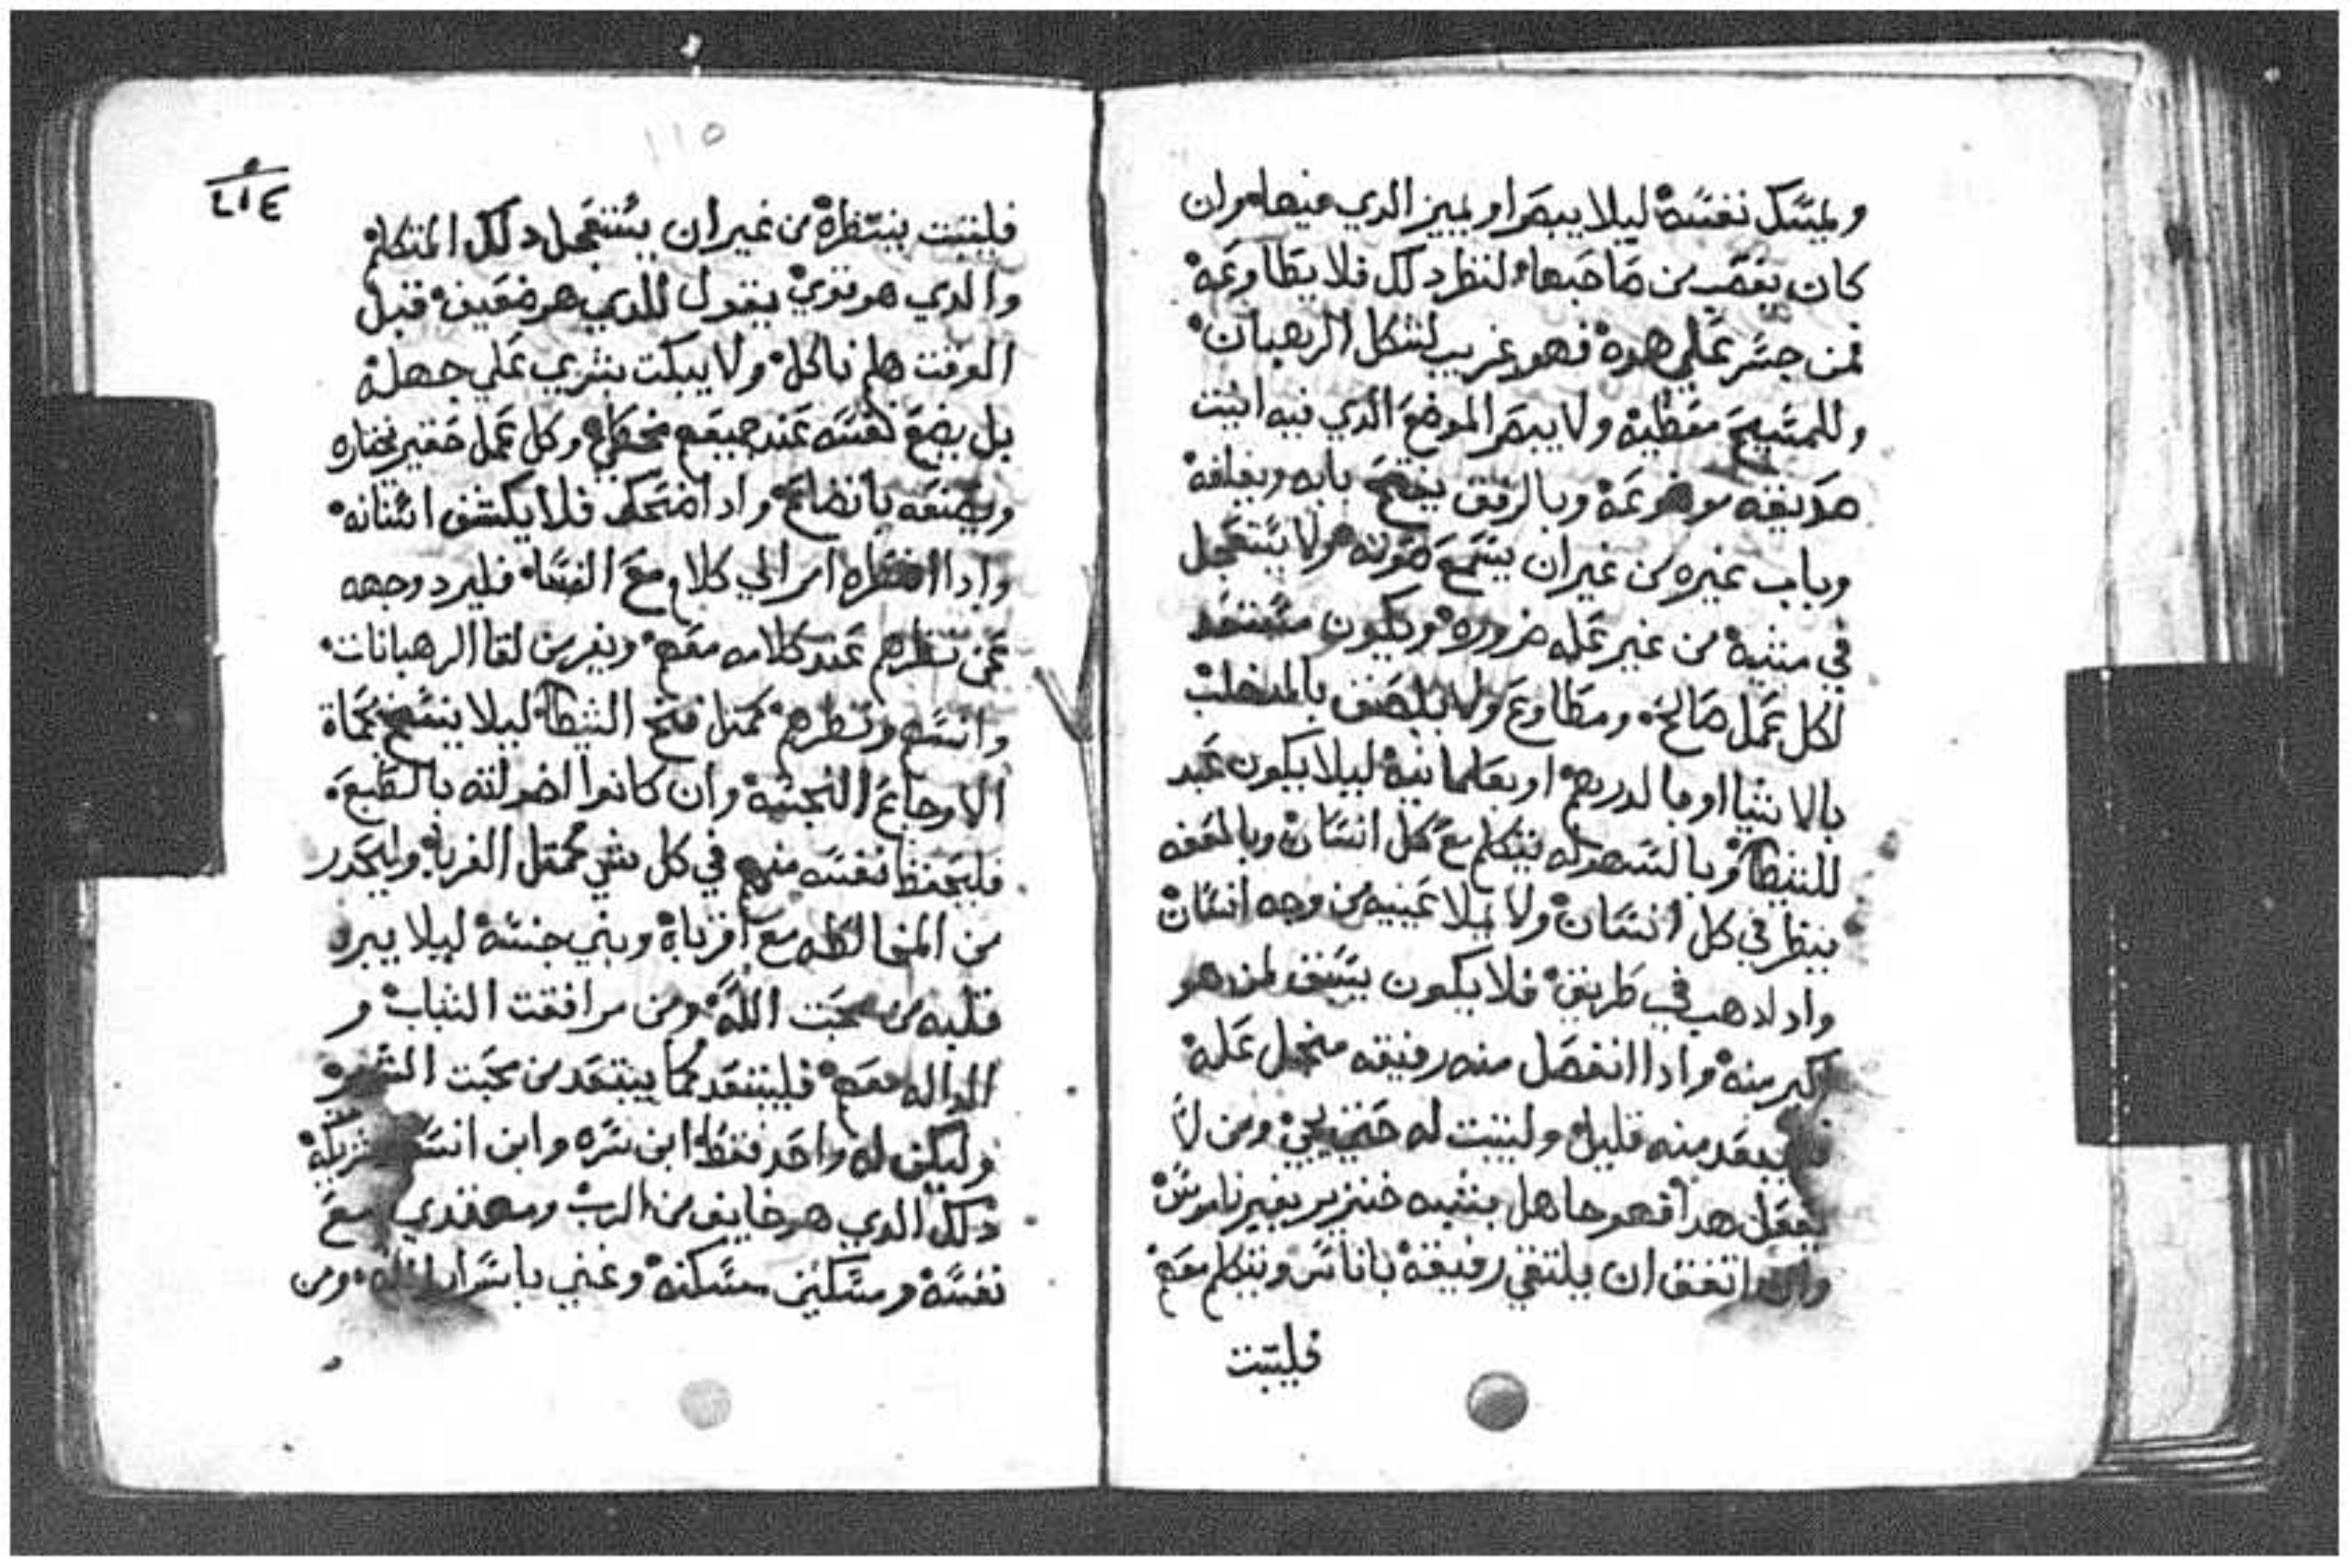 وليمسك نفسه ليلا يبصر او يميز الدي فيها وان
كان يغصب من صاحبها لنظر دلك فلا يطاوعه
فمن جسر علي هده فهو غريب لشكل الرهبان
وللمسيح معطيه ولا يبصر الموضع الدي فيه ابيت
صديقه موضوعه وبالرفق يفتح بابه ويغلقه
وباب غيره من غير ان يسمع صوته ولا يستعجل
في مشيه من غير عله ضروره ويكون مستعد
لكل عمل صالح ومطاوع ولا يلصق
بالاشيا او بالدرهم او ليلا يكون عبد
للشيطان وبالسهوله يتكلم مع كل انسان وبالعفه
ينظر في كل انسان ولا يملا عينيه من وجه انسان
وادا دهب في طريق فلا يكون يسبق لمن هو
اكبر منه وادا انفصل منه رفيقه عله
يبعد منه قليل وليثبت له حتي يجي ومن لا
يفعل هدا فهو جاهل يشبه خنزير بغير ناموس
وان اتفق ان يلتقي رفيقه باناس ويتكلم معهم
فليثبت
١١٥
٢١٤
فليثبت ينتظره من غير ان يستعجل دلك المتكلم
والدي هو قوي يقول للدي هو ضعيف قبل
الوقت هلم ناكل ولا يبكت بشري علي جهله
بل يضع نفسه عند جميعهم وكل عمل حقير يختاره
ويصنعه باتضاع وادا اضحك فلا يكشف اسنانه
وادا اضطره امر الي كلام مع النسا فليرد وجهه
عن نظرهم عند كلامه معهم ويفر من لقا الرهبانات
ونظرهم كمثل فخ الشيطان ليلا يتسخ بحماة
الاوجاع النجسه وان كانوا اخواته بالطبع
فليحفظ نفسه منهم في كل شي كمثل الغربا وليحدر
من المخالطه مع اقرباه وبني جنسه ليلا يبرد
قلبه من محبت الله ومن مرافقت الشباب و
الداله معهم فليبتعد كما يبتعد من محبت
وليكن له واحد فقط ابن سره وابن
دلك الدي هو خايف من الرب ومهتدي مع
نفسه ومسكين مسكنه وغني باسرار الله ومن